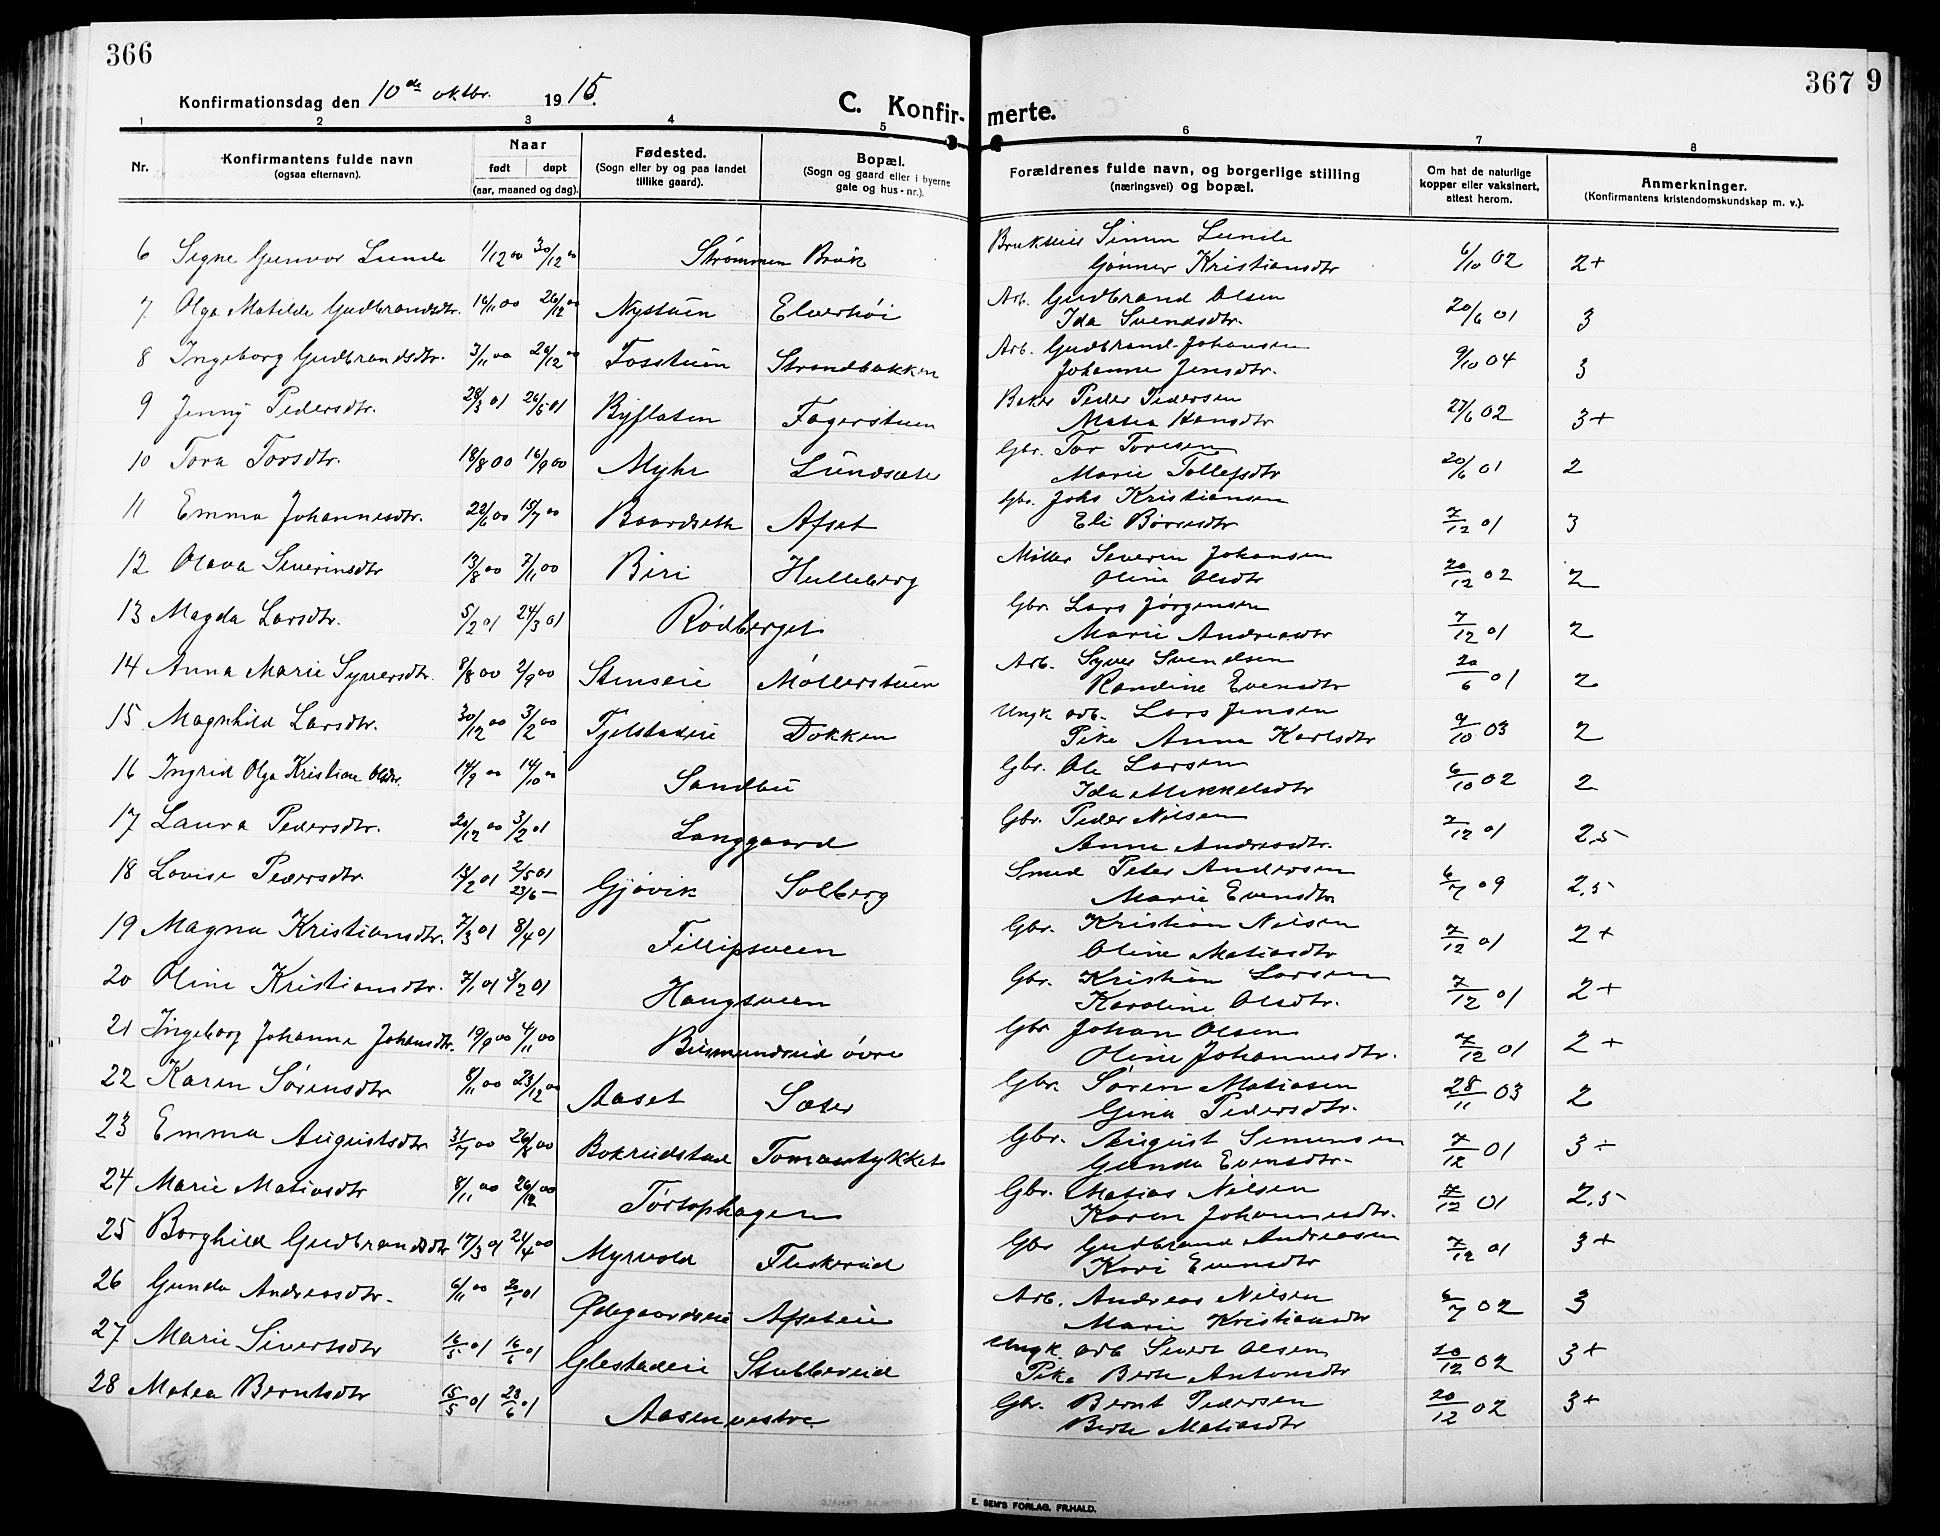 366
Konfirmationsdag den 10de oktbr. 1915.
C. Konfir-
1 2 3 4 5
Nr.
Konfirmantens fulde navn
(ogsaa efternavn).
Naar
født døpt
(aar, maaned og dag).
Fødested.
(Sogn eller by og paa landet
tillike gaard).
Bopæl.
(Sogn og gaard eller i byerne
gate og hus-nr.).
6 Signe Gunvor Lunde 1/12 00 30/12 00 Strømmen Bruk
7 Olga Matilde Gudbrandsdtr. 16/11 00 26/12 00 Nystuen Elverhøi
8 Ingeborg Gudbrandsdtr. 3/11 00 26/12 00 Fosstuen Strandbakken
9 Jenny Pedersdtr. 28/3 01 26/5 01 Byflaten Fagerstuen
10 Tora Torsdtr. 18/8 00 16/9 00 Myhr Lundsæte
11 Emma Johannesdtr. 22/6 00 15/7 00 Baardseth Afset
12 Olava Severinsdtr 13/8 00 7/11 00 Biri Hulleberg
13 Magda Larsdtr. 5/2 01 24/3 01 Rødberget
14 Anna Marie Syversdtr. 8/8 00 2/9 00 Stenseie Møllerstuen
15 Magnhild Larsdtr. 30/12 00 3/2 00 Fjelstadeie Dokken
16 Ingrid Olga Kristine Olsdtr. 14/9 00 14/10 00 Sandbu
17 Laura Pedersdtr. 20/12 00 3/2 01 Langgaard
18 Lovise Pedersdtr. 15/2 01 2/5 01 23/6 — Gjøvik Solberg
19 Magna Kristiansdtr. 7/3 01 8/4 01 Fillipsveen
20 Oline Kristiansdtr. 7/1 01 3/2 01 Haugsveen
21 Ingeborg Johanne Johansdtr. 19/9 00 4/11 00 Bismundseid øvre
22 Karen Sørensdtr 8/11 00 23/12 00 Aaset Sæter
23 Emma Augustsdtr 31/7 00 26/8 00 Bokrudstad Tomastykket
24 Marie Matiasdtr 8/11 00 26/12 00 Tørtophagen
25 Borghild Gudbrandsdtr 17/3 01 24/4 00 Myrvold Fliskerud
26 Gunda Andreasdtr. 6/11 00 20/1 01 Ødegaardseie Afseteie
27 Marie Sivertsdtr 16/5 01 16/6 01 Glestadeie Stubberud
28 Matea Berntsdtr 15/5 01 23/6 01 Aasen vestre
367 9
merte.
6 7 8
Forældrenes fulde navn, og borgerlige stilling
(næringsvei) og bopæl.
Om hat de naturlige
kopper eller vaksinert,
attest herom.
Anmerkninger.
(Konfirmantens kristendomskundskap m. v.).
Brukseier Simen Lunde
Gunnor Kristiansdtr 6/10 02 2+
Arb. Gudbrand Olsen
Ida Svendsdtr. 20/6 01 3
Arb. Gudbrand Johansen
Johanne Jensdtr. 9/10 04 3
Baker Peder Pedersen
Matea Hansdtr 27/6 02 3+
Gbr. Tor Toresen
Marie Tollefsdtr 20/6 01 2
Gbr. Johs Kristiansen
Eli Børresdtr 7/12 01 3
Møller Severin Johansen
Oline Olsdtr 20/12 02 2
Gbr. Lars Jørgensen
Marie Andreasdtr 7/12 01 2
Arb. Syver Svendsen
Randine Evensdtr 20/6 01 2
Ungk. arb. Lars Jensen
Pike Anna Karlsdtr 9/10 03 2
Gbr. Ole Larsen
Ida Mikkelsdtr 6/10 02 2
Gbr. Peder Nilsen
Anne Andreasdtr. 7/12 01 2,5
Smed Peter Andersen
Marie Evensdtr 6/7 09 2,5
Gbr. Kristian Nilsen
Oline Matiasdtr 7/12 01 2+
Gbr. Kristian Larsen
Karoline Olsdtr. 7/12 01 2+
Gbr Johan Olsen
Oline Johannesdtr. 7/12 01 2+
Gbr. Søren Matiasen
Gina Pedersdtr. 28/11 03 2
Gbr. August Simensen
Gunda Evensdtr. 7/12 01 3÷
Gbr. Matias Nilsen
Karen Johannesdtr. 7/12 01 2,5
Gbr Gudbrand Andreasen
Kari Evensdtr 7/12 01 3+
Arb. Andreas Nilsen
Marie Kristiansdtr 6/7 02 3
Ungk. arb Sivert Olsen
Pike Berte Antonsdtr 20/12 02 3+
Gbr. Bernt Pedersen
Berte Matiasdtr 20/12 02 3+
E. SEM'S FORLAG, FR.HALD.